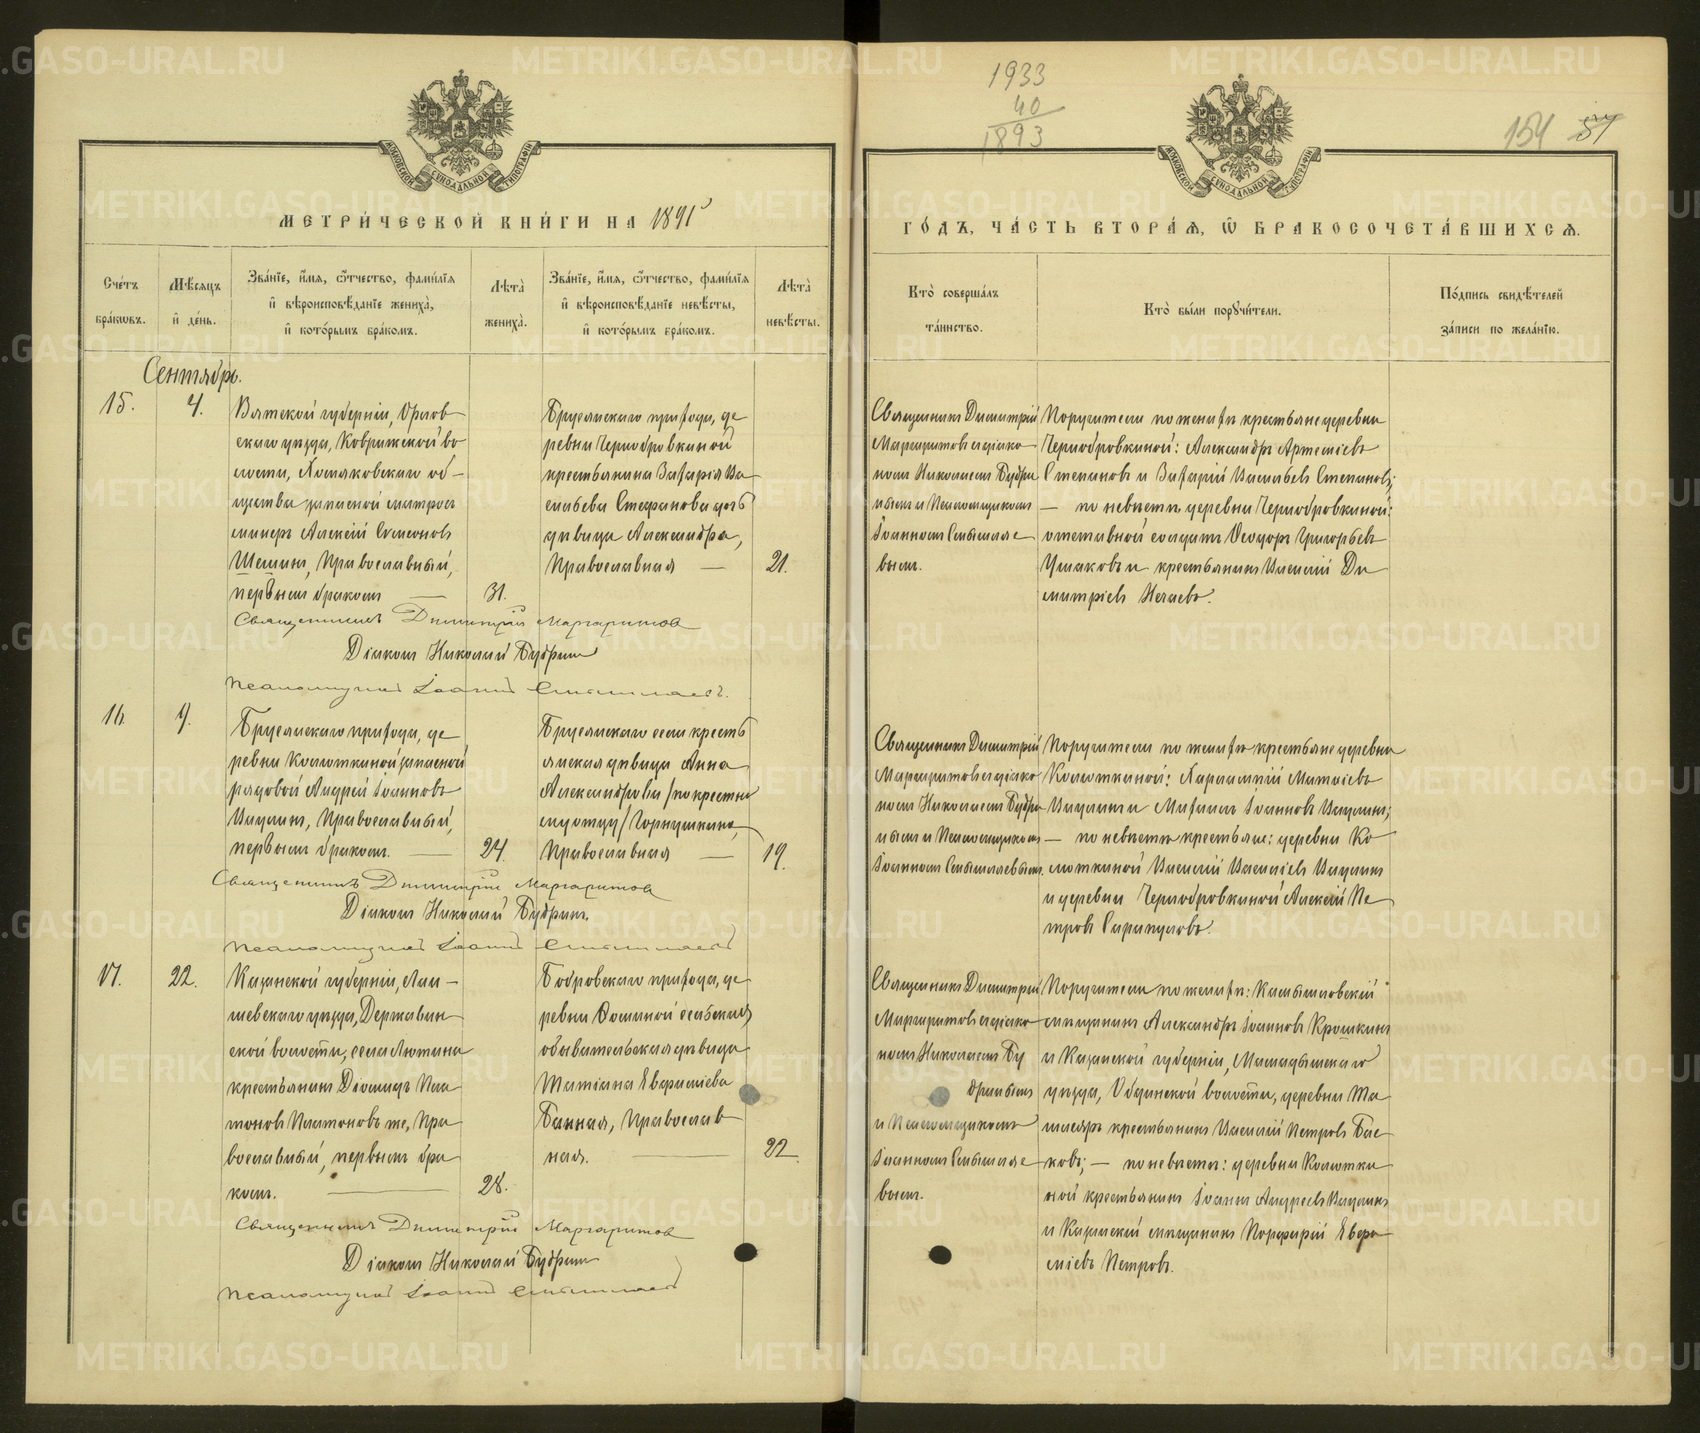 1933
40
1893
154 57
МОСКОВСКОЙ СѴНОДАЛЬНОЙ ТИПОГРАФІИ
МОСКОВСКОЙ СѴНОДАЛЬНОЙ ТИПОГРАФІИ
МЕТРИ́ЧЕСКОЙ КНИ́ГИ НА 1891
Сче́тъ бра́кѡвъ.
Мѣ́сяцъ и҆ де́нь.
Зва́нїе, и҆́мѧ, ѻ҆́тчество, фами́лїѧ
и҆ вѣроисповѣ́данїе жениха̀,
и҆ кото́рымъ бра́комъ.
Лѣ́та̀ жениха̀.
Зва́нїе, и҆́мѧ, ѻ҆́тчество, фами́лїѧ
и҆ вѣроисповѣ́данїе невѣ́сты,
и҆ кото́рымъ бра́комъ.
Лѣ́та̀ невѣ́сты.
Сентябрь.
15. 4.
Вятской губерніи, Орлов
скаго уѣзда, Кобринской во
лости,
щества запасной матрос
Алексій
Шешин, Православный,
первым браком — 31.
Бруснянскаго прихода, де
ревни Чернобровкиной
крестьянина Захарія Ва
сильева Стефанова дочь
дѣвица Александра,
Православная — 21.
Священникъ Димитрій Маргаритов
Діакон Николай Будрин
Псаломщикъ Іоаннъ Смышляевъ.
16. 9.
Бруснянскаго прихода, де
ревни Колюткиной запасной
рядовой Андрей Іоаннов
Православный,
первым браком. — 24.
Бруснянскаго села кресть
янская дѣвица Анна
Александрова /по крестно
му отцу/ Горнушкина,
Православная — 19.
Священникъ Димитрій Маргаритов
Діакон Николай Будрин.
Псаломщикъ Іоаннъ Смышляевъ
17. 22.
Казанской губерніи, Лаи
шевскаго уѣзда, Державин
ской волости, села
крестьянин Діомид Пла
тонов Платонов же, Пра
вославный, первым бра
ком. — 28.
Бобровскаго прихода, де
ревни Фоминой сельская
обывательская дѣвица
Татіана Евфиміева
Банная, Православ
ная. — 22.
Священникъ Димитрій Маргаритов
Діакон Николай Будрин
Псаломщикъ Іоаннъ Смышляевъ
ГО́ДЪ, ЧА́СТЬ ВТОРА́Ѧ, Ѽ БРАКОСОЧЕТА́ВШИХСѦ.
Кто̀ соверша́лъ
та́инство.
Кто̀ бы́ли порꙋчи́тели.
По́дпись свидѣ́телей
за́писи по жела́нїю.
Священник Димитрій
Маргаритов с діако
ном Николаем Будри
ным и Псаломщиком
Іоанном Смышляе
вым.
Поручители по женихѣ крестьяне деревни
Чернобровкиной: Александр Артеміев
Степанов и Захарій Васильев Степанов;
— по невѣстѣ деревни Чернобровкиной:
отставной солдат Ѳеодор Григорьев
Ушаков и крестьянин Василій Ди
митріев Нечаев.
Священник Димитрій
Маргаритов с діако
ном Николаем Будри
ным и Псаломщиком
Іоанном Смышляевым.
Поручители по женихѣ крестьяне деревни
Колюткиной: Харлампій Матвіев
и Михаил Іоаннов
— по невѣстѣ крестьяне: деревни Ко
люткиной Василій Василіев
и деревни Чернобровкиной Алексій Пе
тров Сарапулов.
Священник Димитрій
Маргаритов с діако
ном Николаем Бу
дриным
и Псаломщиком
Іоанном Смышляе
вым.
Поручители по женихѣ: Камышловскій
мѣщанин Александр Іоаннов Крошкин
и Казанской губерніи, Мамадышскаго
уѣзда, волости, деревни
крестьянин Василій Петров Бас
ков; — по невѣстѣ: деревни Колютки
ной крестьянин Іоанн Андреев
и Казанскій мѣщанин Порфирій Евфи
міев Петров.
METRIKI.GASO-URAL.RU